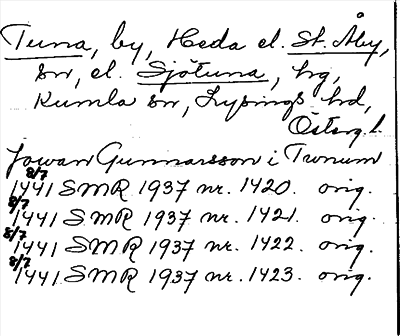 Tuna, by, Heda el. St. Åby,
sn, el. Sjötuna, hg,
Kumla sn, Lysings hd,
Östergl.
Jowan Gunnarsson i Twnum
8/7 1441 SMR 1937 nr. 1420. orig.
8/7 1441 SMR 1937 nr. 1421. orig.
8/7 1441 SMR 1937 nr. 1422. orig.
8/7 1441 SMR 1937 nr. 1423. orig.